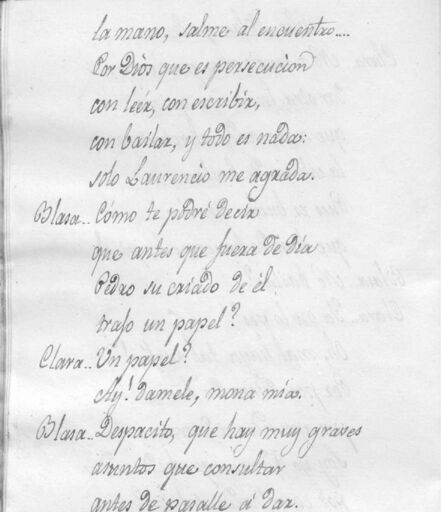 la mano, salme al encuentro....
Por Dios que es persecucion
con leér, con escribir,
con bailar, y todo es nada:
solo Laurencio me agrada.
Blasa.. Cómo te podré decir
que antes que fuera de dia
Pedro su criado de él
trajo un papel?
Clara.. Un papel?
Ay! damele, mona mia.
Blasa.. Despacito, que hay muy graves
asuntos que consultar
antes de pasalle á dar.